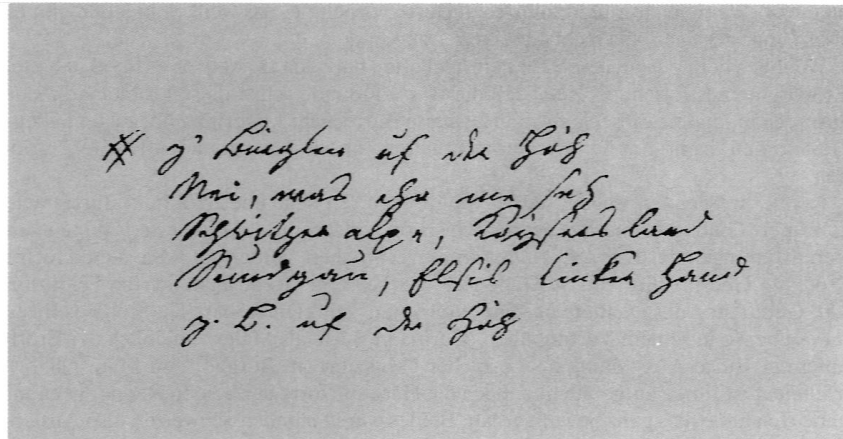 # z' Bürglen uf der Höh
Nei, was cha me seh
Schwitzer alpe, Kaysers land
Sundgau, Elsis linker Hand
z. B. uf der Höh